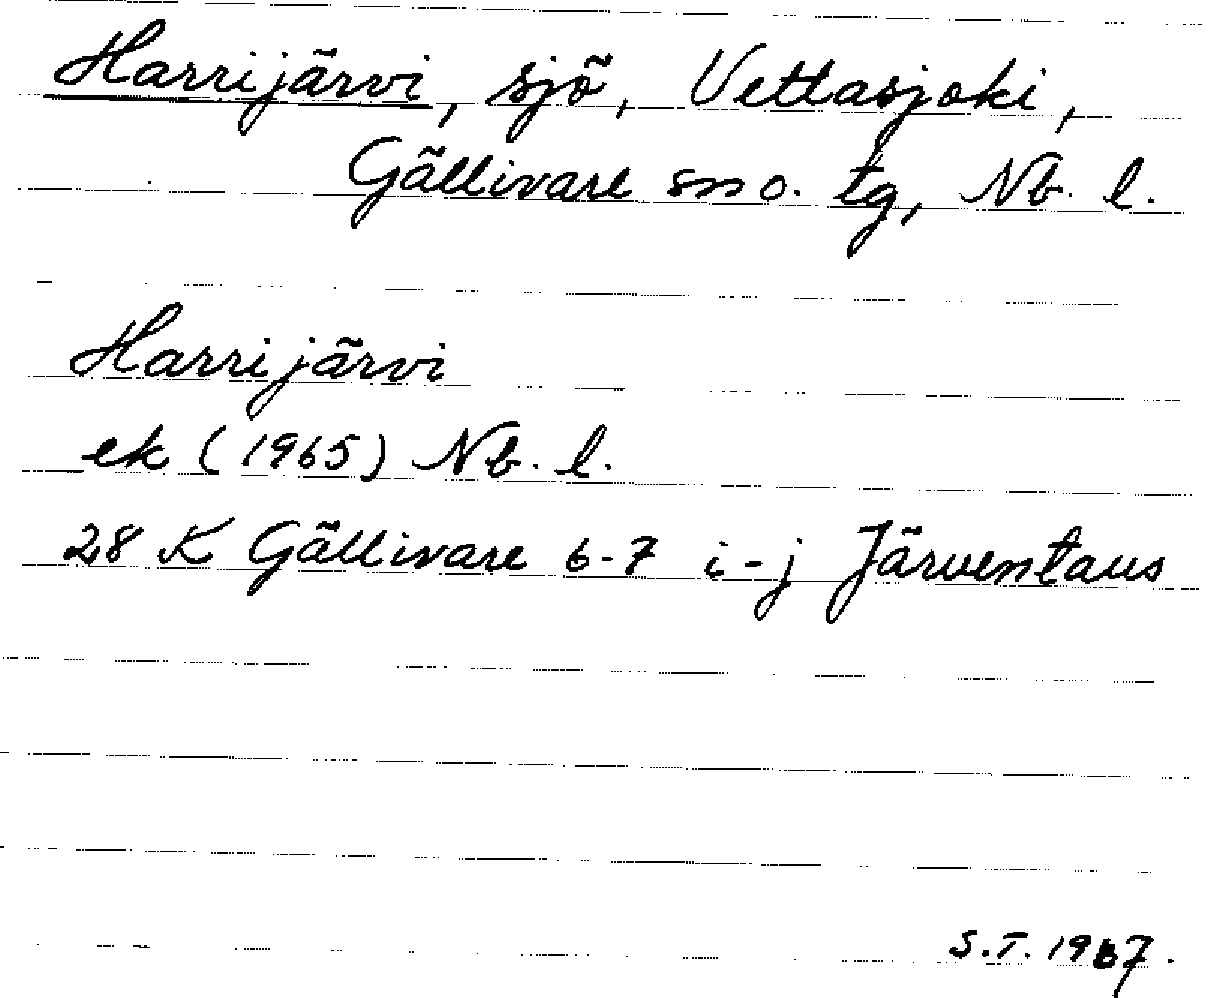 Harrijärvi, sjö, Vettasjoki,
Gällivare sn o. tg, Nb. l.
Harrijärvi
ek (1965) Nb. l.
28 K Gällivare 6-7 i-j Järventaus
S.T. 1967.